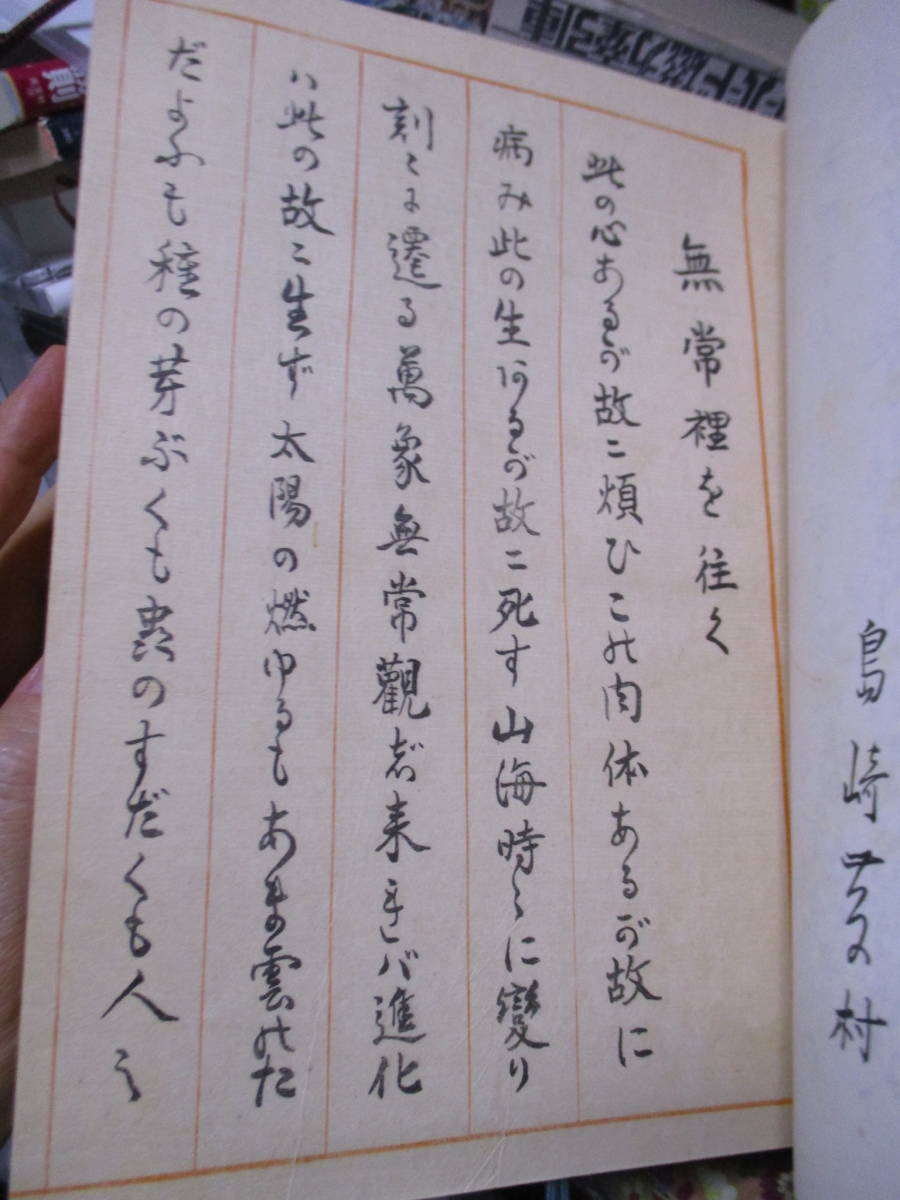 島崎 村
無常裡を往く
此の心あるが故に煩ひこの肉体あるが故に
病み此の生あるが故ニ死す山海時々に變り
刻々に遷る萬象無常觀じ来れバ進化
ハ此の故ニ生ず太陽の燃ゆるもあま雲のた
だよふも種の芽ぶくも虫のすだくも人之